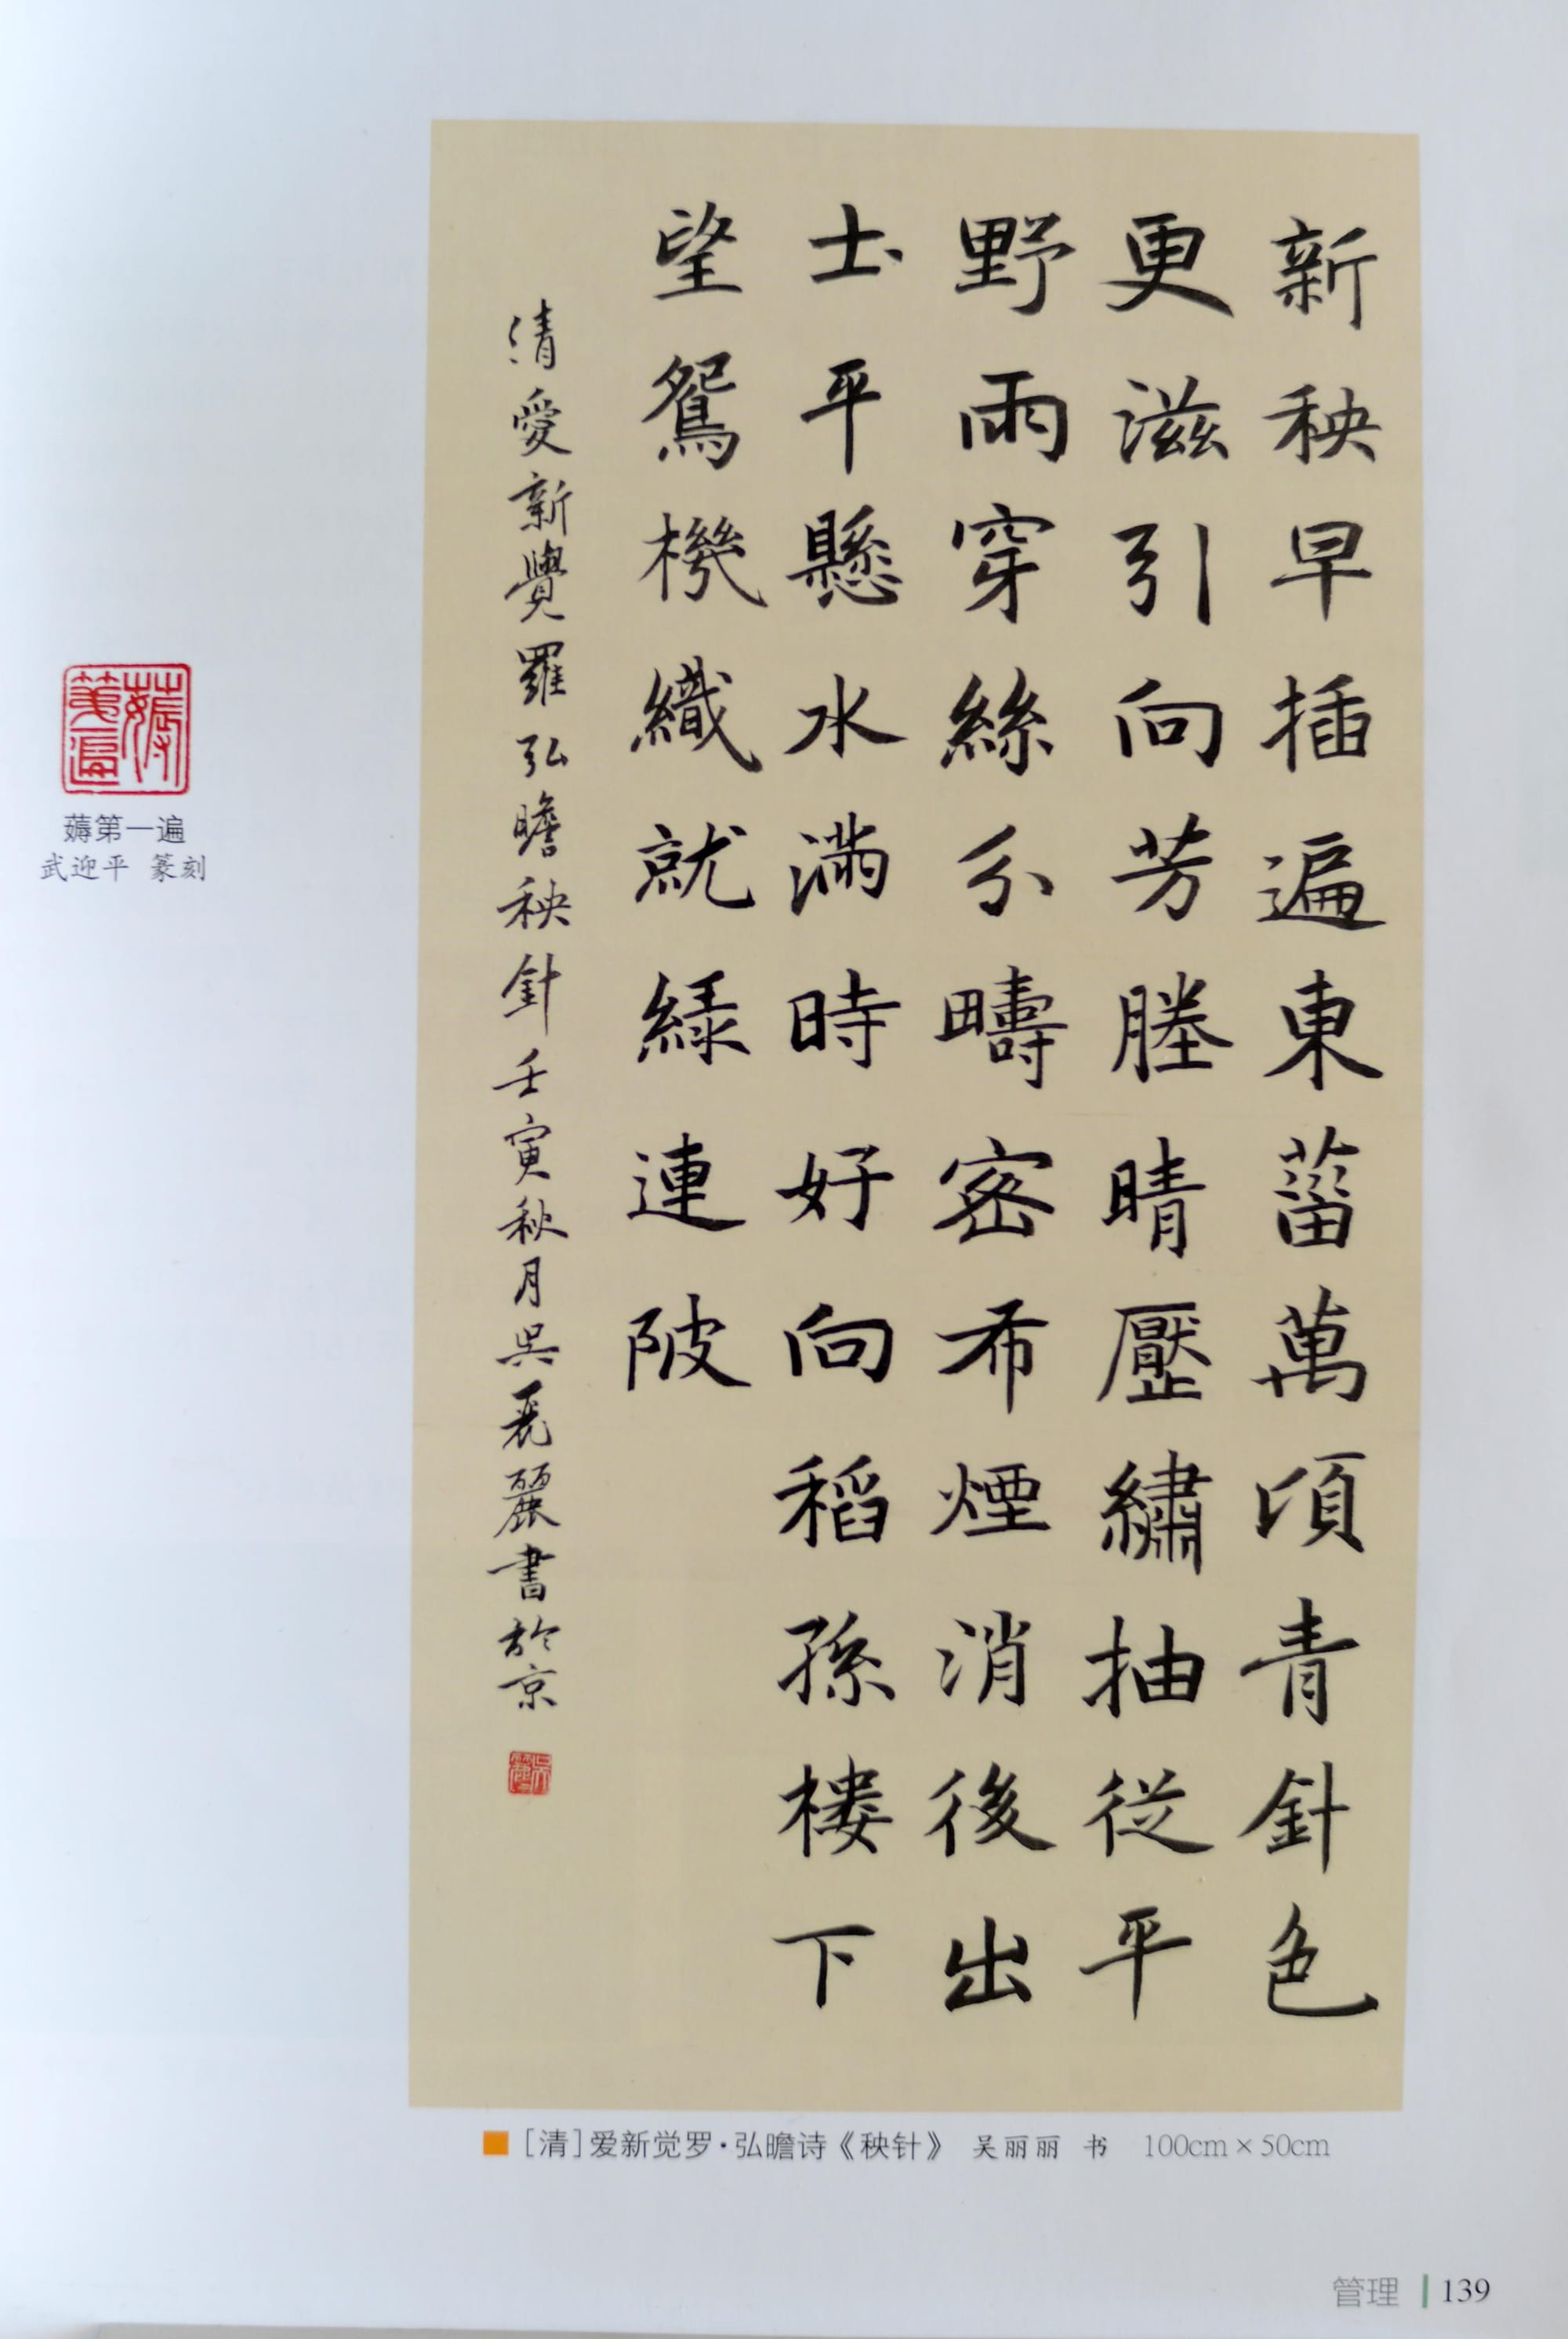 新秧早插遍東菑萬頃青針色
更滋引向芳塍晴壓繡抽從平
野雨穿絲分疇密布煙消後出
土平懸水滿時好向稻孫樓下
望鴛機織就綠連陂
清愛新覺羅弘瞻秧針壬寅秋月吳麗麗書於京
吳麗麗
薅第一遍
薅第一遍
武迎平 篆刻
[清]爱新觉罗·弘瞻诗《秧针》 吴丽丽 书 100cm×50cm
管理 139